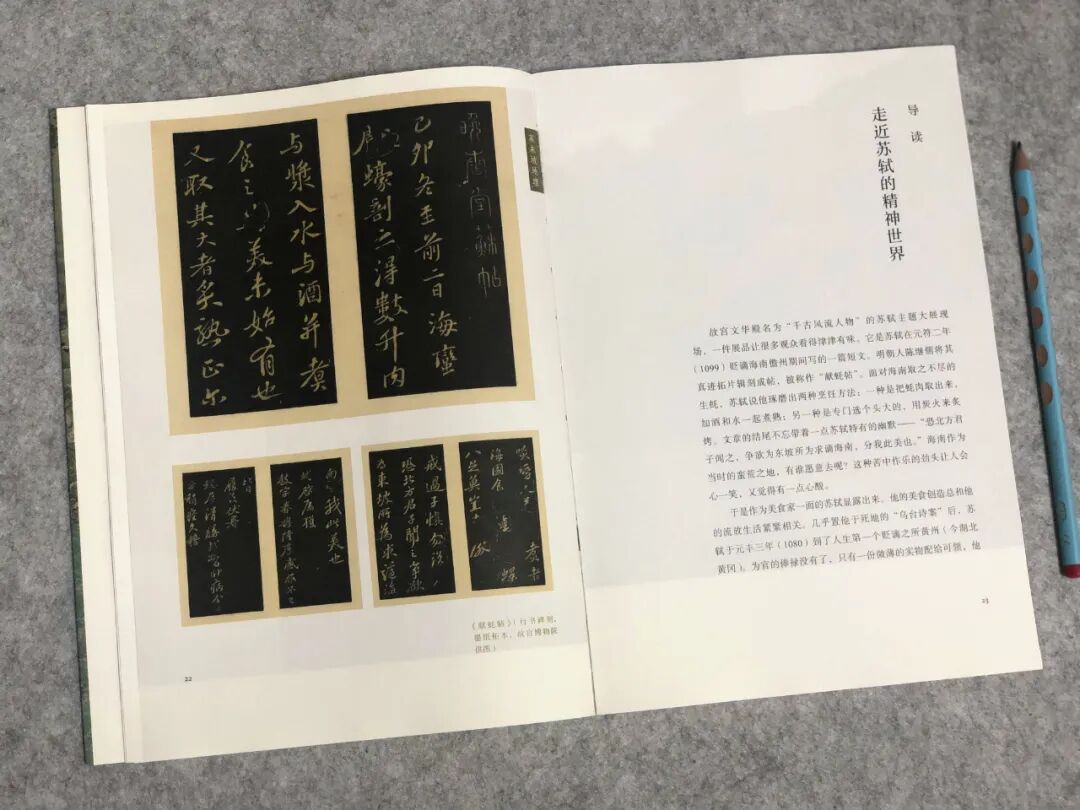 晚香堂苏帖
己卯冬至前二日海蛮
献蠔剖之得数升肉
与浆入水与酒并煮
食之甚美未始有也
又取其大者炙熟正尔
海国食
戒过子慎勿说
恐北方君子闻之争欲
为东坡所为求谪海
南分我此美也
《献蚝帖》(行书碑刻,
墨纸拓本,故宫博物院
供图)
22
导读
走近苏轼的精神世界
故宫文华殿名为“千古风流人物”的苏轼主题大展现
场,一件展品让很多观众看得津津有味。它是苏轼在元符二年
(1099)贬谪海南儋州期间写的一篇短文。明朝人陈继儒将其
真迹拓片辑刻成帖,被称作“献蚝帖”。面对海南取之不尽的
生蚝,苏轼说他琢磨出两种烹饪方法:一种是把蚝肉取出来,
加酒和水一起煮熟;另一种是专门选个头大的,用炭火来炙
烤。文章的结尾不忘带着一点苏轼特有的幽默——“恐北方君
子闻之,争欲为东坡所为求谪海南,分我此美也。”海南作为
当时的蛮荒之地,有谁愿意去呢?这种苦中作乐的劲头让人会
心一笑,又觉得有一点心酸。
于是作为美食家一面的苏轼显露出来。他的美食创造总和他
的流放生活紧紧相关。几乎置他于死地的“乌台诗案”后,苏
轼于元丰三年(1080)到了人生第一个贬谪之所黄州(今湖北
黄冈)。为官的俸禄没有了,只有一份微薄的实物配给可领,他
23